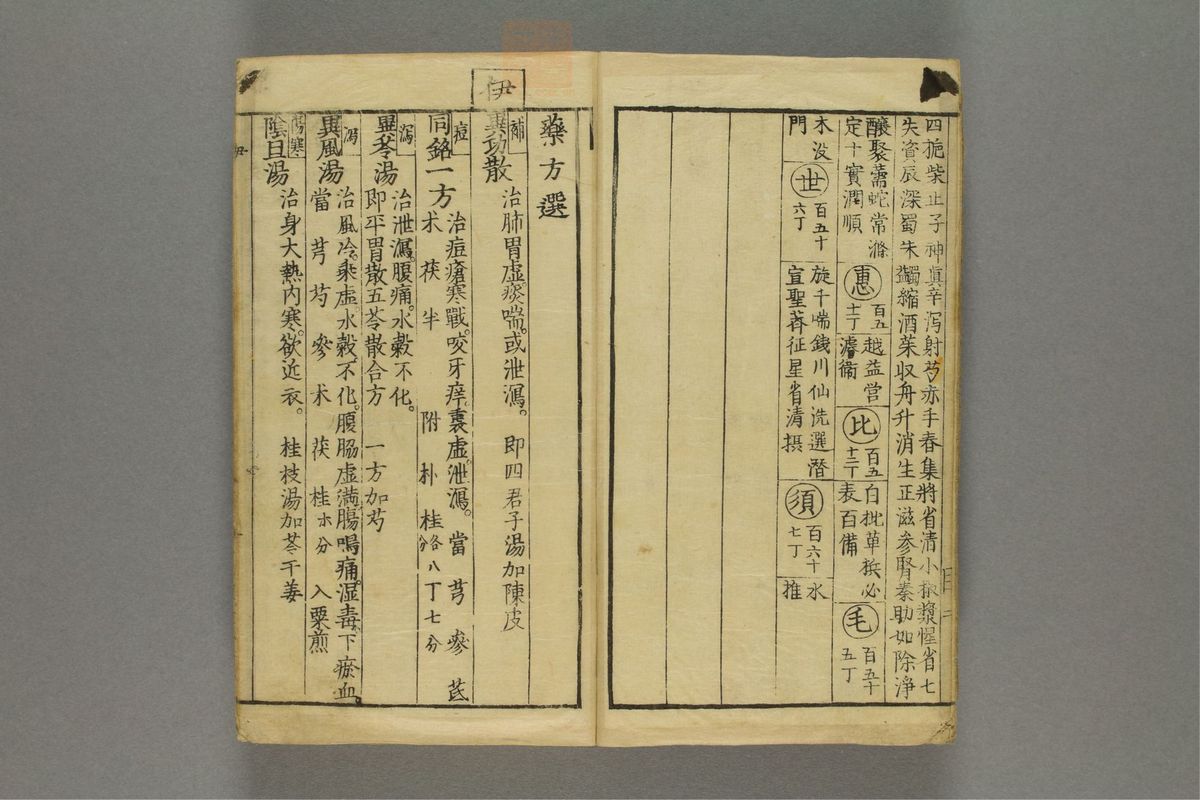 四梔柴止子神眞辛泻射芍赤手春集將省清小椒漿惺省七
失資辰深蜀朱蠲縮酒茱収舟升消生正滋参腎秦助如除淨
釀聚薷蛇常滌
定十實潤順
惠
百五
十一丁
越益営
濬衞
比
百五
十二丁
白批草挨必
表百備
毛
百五十
五丁
木没
門
世
百五十
六丁
旋千喘銭川仙洗選潜
宣聖荐征星省清撰
須
百六十
七丁
水
推
目二
伊
藥方選
補
異功散
治肺胃虚痰喘。或泄瀉。即四君子湯加陳皮
痘
同銘一方
治痘瘡寒戰。咬牙痒。裏虚泄瀉。當芎參芪
术茯半附朴桂各八丁七分
泻
異苓湯
治泄瀉。腹痛。水穀不化。
即平胃散五苓散合方 一方加芍
泻
異風湯
治風冷。乘虚。水穀不化。腹脇虚満。腸鳴痛。湿毒下瘀血。
當芎芍參术茯桂木分入粟煎
傷寒
陰旦湯
治身大熱内寒。欲近衣。桂枝湯加芩干姜